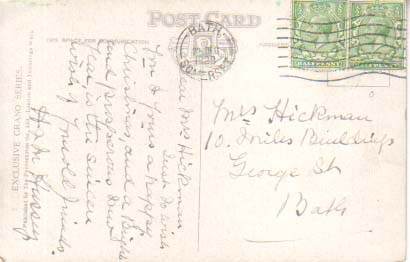 POST CARD
THIS SPACE FOR COMMUNICATION
BATH
SOMERSET
HALFPENNY
HALFPENNY
EXCLUSIVE GRAND SERIES.
Dear Mrs Hickman
Just to wish
You & Yours a Happy
Christmas and a Bright
and prosperous New
Year is the sincere
wish of Your Old Friends
Mrs Hickman
10. Buildings
George St
Bath